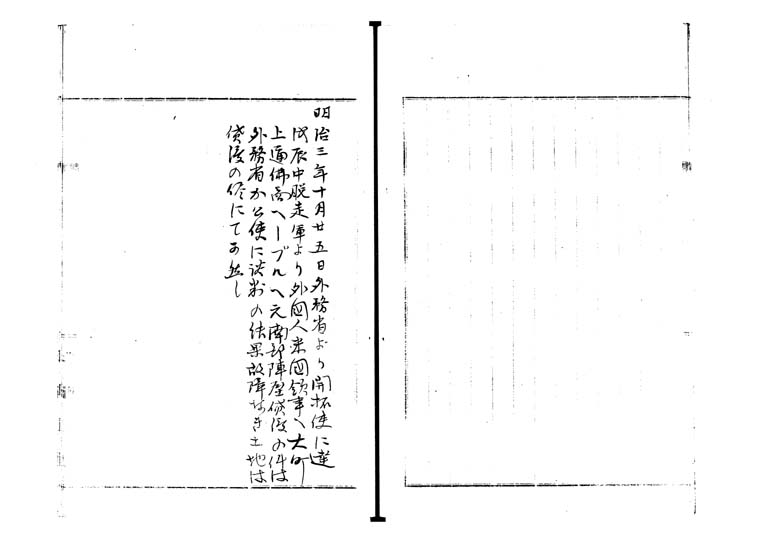 明治三年十月廿五日外務省より開拓使に達
戊辰中脱走軍より外国人米国領事へ大町
上通佛商ヘーブルへ元南部陣屋貸渡の件は
外務省か公使に談判の結果故障なき土地は
貸渡の侭にて可然し